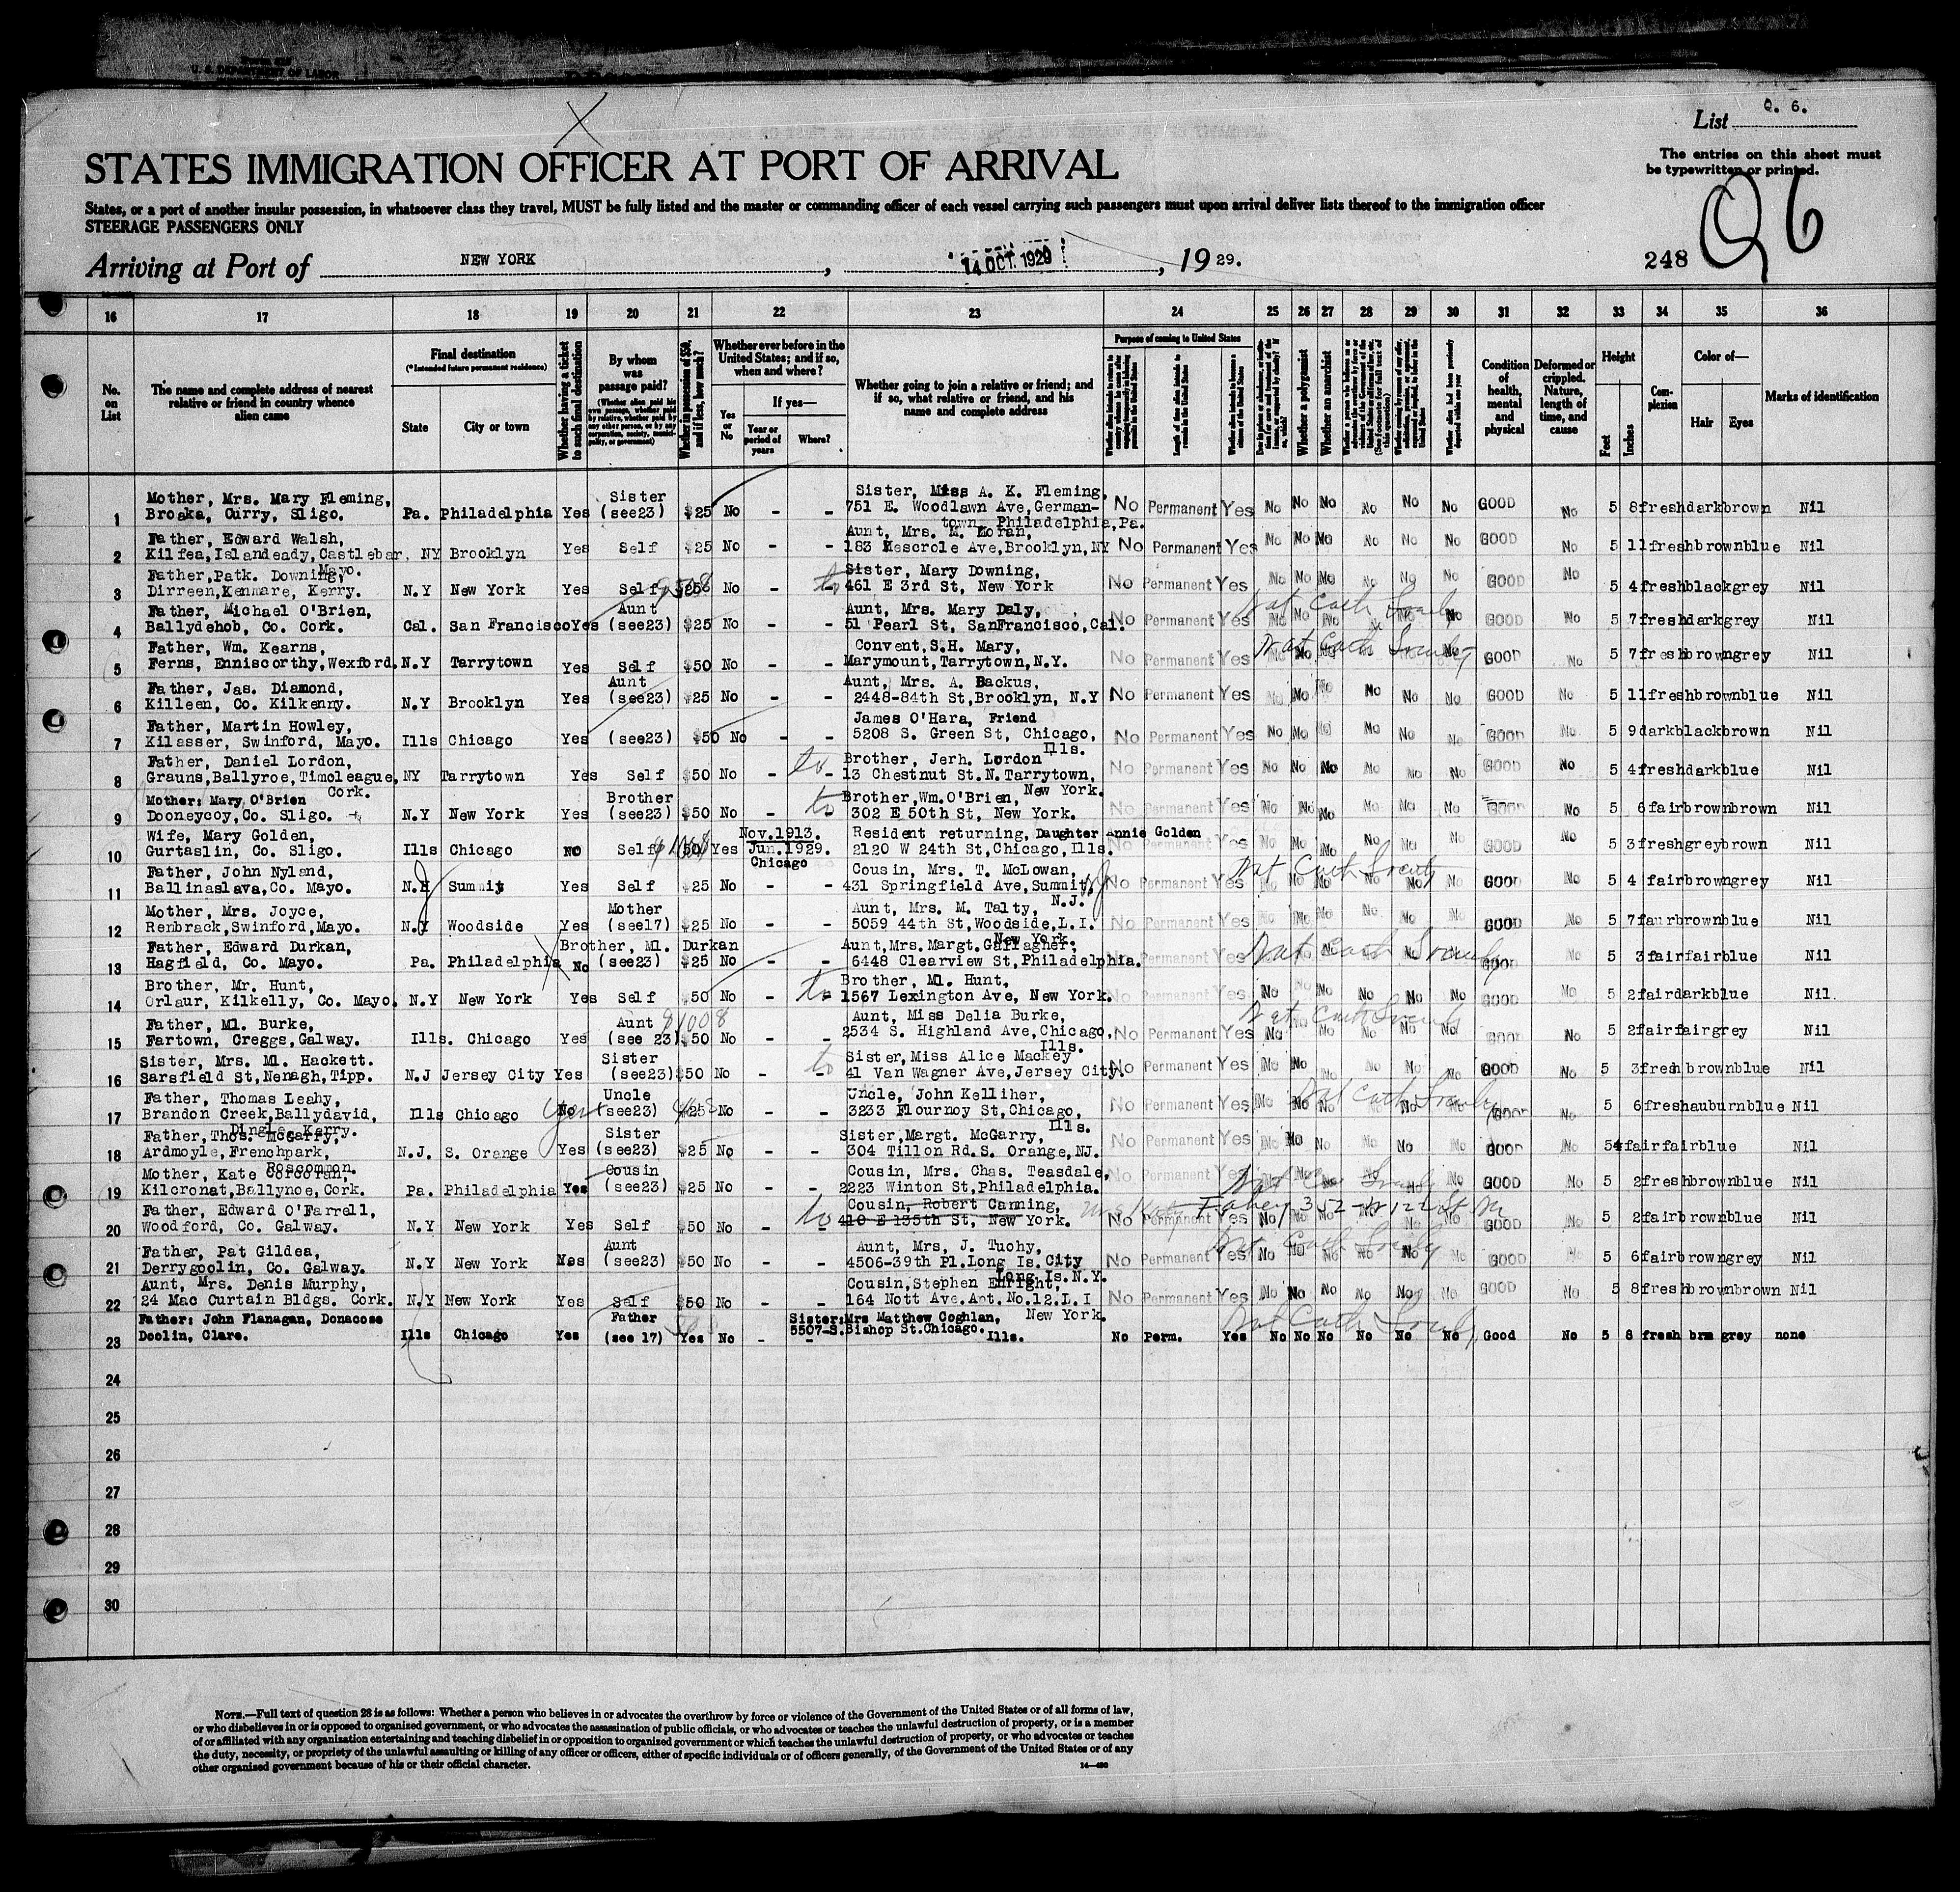 U. S. DEPARTMENT OF LABOR
List Q. 6.
STATES IMMIGRATION OFFICER AT PORT OF ARRIVAL
The entries on this sheet must
be typewritten or printed.
States, or a port of another insular possession, in whatsoever class they travel, MUST be fully listed and the master or commanding officer of each vessel carrying such passengers must upon arrival deliver lists thereof to the immigration officer
STEERAGE PASSENGERS ONLY
Q6
Arriving at Port of NEW YORK, 14 OCT. 1929, 19 29.
248
16 17 18 19 20 21 22 23 24 25 26 27 28 29 30 31 32 33 34 35 36
No. on List
The name and complete address of nearest relative or friend in country whence alien came
Final destination
(*Intended future permanent residence)
State
City or town
Whether having a ticket to such final destination
By whom was passage paid?
(Whether alien paid his own passage, whether paid by relative, whether paid by any other person, or by any corporation, society, municipality, or government)
Whether in possession of $50, and if less, how much?
Whether ever before in the United States; and if so, when and where?
Yes or No
If yes—
Year or period of years
Where?
Whether going to join a relative or friend; and if so, what relative or friend, and his name and complete address
Purpose of coming to United States
Length of time alien intends to remain in the United States
Whether alien intends to become a citizen of the United States
Whether a polygamist
Whether an anarchist
Whether alien had been previously deported within one year
Condition of health, mental and physical
Deformed or crippled. Nature, length of time, and cause
Height
Feet
Inches
Complexion
Color of—
Hair
Eyes
Marks of identification
1 Mother, Mrs. Mary Fleming, Broaka, Curry, Sligo. Pa. Philadelphia Yes Sister (see23) $25 No - - Sister, Miss A. K. Fleming, 751 E. Woodlawn Ave, Germantown, Philadelphia, Pa. No Permanent Yes No No No No No No GOOD No 5 8 fresh dark brown Nil
2 Father, Edward Walsh, Kilfea, Islandeady, Castlebar, Mayo. NY Brooklyn Yes Self $25 No - - Aunt, Mrs. M. Moran, 183 Mescrole Ave, Brooklyn, NY No Permanent Yes No No No No No No GOOD No 5 11 fresh brown blue Nil
3 Father, Patk. Downing, Dirreen, Kenmare, Kerry. N.Y New York Yes Self $25 No - to Sister, Mary Downing, 461 E 3rd St, New York No Permanent Yes No No No No No No GOOD No 5 4 fresh black grey Nil
4 Father, Michael O'Brien, Ballydehob, Co. Cork. Cal. San Francisco Yes Aunt (see23) $25 No - - Aunt, Mrs. Mary Daly, 51 Pearl St, SanFrancisco, Cal. No Permanent Yes No No No No No No GOOD No 5 7 fresh dark grey Nil
5 Father, Wm. Kearns, Ferns, Enniscorthy, Wexford. N.Y Tarrytown Yes Self $50 No - - Convent, S.H. Mary, Marymount, Tarrytown, N.Y. No Permanent Yes No No No No No No GOOD No 5 7 fresh brown grey Nil
6 Father, Jas. Diamond, Killeen, Co. Kilkenny. N.Y Brooklyn Yes Aunt (see23) $25 No - - Aunt, Mrs. A. Backus, 2448-84th St, Brooklyn, N.Y No Permanent Yes No No No No No No GOOD No 5 11 fresh brown blue Nil
7 Father, Martin Howley, Kilasser, Swinford, Mayo. Ills Chicago Yes (see23) $50 No - - James O'Hara, Friend 5208 S. Green St, Chicago, Ills. No Permanent Yes No No No No No No GOOD No 5 9 dark black brown Nil
8 Father, Daniel Lordon, Grauns, Ballyroe, Timoleague, Cork. NY Tarrytown Yes Self $50 No - to Brother, Jerh. Lordon 13 Chestnut St. N. Tarrytown, New York. No Permanent Yes No No No No No No GOOD No 5 4 fresh dark blue Nil
9 Mother: Mary O'Brien Dooneycoy, Co. Sligo. N.Y New York Yes Brother (see23) $50 No - to Brother, Wm. O'Brien, 302 E 50th St, New York. No Permanent Yes No No No No No No GOOD No 5 6 fair brown brown Nil
10 Wife, Mary Golden, Gurtaslin, Co. Sligo. Ills Chicago NO Self $50 Yes Nov.1913. Jun.1929. Chicago Resident returning, Daughter Annie Golden 2120 W 24th St, Chicago, Ills. No Permanent Yes No No No No No No GOOD No 5 3 fresh grey brown Nil
11 Father, John Nyland, Ballinaslava, Co. Mayo. N.J Summit Yes Self $25 No - - Cousin, Mrs. T. McLowan, 431 Springfield Ave, Summit, N.J. No Permanent Yes No No No No No No GOOD No 5 4 fair brown grey Nil
12 Mother, Mrs. Joyce, Renbrack, Swinford, Mayo. N.Y Woodside Yes Mother (see17) $25 No - - Aunt, Mrs. M. Talty, 5059 44th St, Woodside, L.I. New York. No Permanent Yes No No No No No No GOOD No 5 7 faur brown blue Nil
13 Father, Edward Durkan, Hagfield, Co. Mayo. Pa. Philadelphia No Brother, Ml. Durkan (see23) $25 No - - Aunt, Mrs. Margt. Gallagher. 6448 Clearview St, Philadelphia. No Permanent Yes No No No No No No GOOD No 5 3 fair fair blue Nil
14 Brother, Mr. Hunt, Orlaur, Kilkelly, Co. Mayo. N.Y New York Yes Self $50 No - to Brother, Ml. Hunt, 1567 Lexington Ave, New York. No Permanent Yes No No No No No No GOOD No 5 2 fair dark blue Nil.
15 Father, Ml. Burke, Fartown, Creggs, Galway. Ills. Chicago Yes Aunt (see 23) $50 No - - Aunt, Miss Delia Burke, 2534 S. Highland Ave, Chicago, Ills. No Permanent Yes No No No No No No GOOD No 5 2 fair fair grey Nil
16 Sister, Mrs. Ml. Hackett. Sarsfield St, Nenagh, Tipp. N.J Jersey City Yes Sister (see23) $50 No - to Sister, Miss Alice Mackey 41 Van Wagner Ave, Jersey City. No Permanent Yes No No No No No No GOOD No 5 3 fresh brown blue Nil
17 Father, Thomas Leahy, Brandon Creek, Ballydavid, Dingle, Kerry. Ills Chicago No Uncle (see23) $25 No - - Uncle, John Kelliher, 3233 Flournoy St, Chicago, Ills. No Permanent Yes No No No No No No GOOD No 5 6 fresh auburn blue Nil
18 Father, Thos. McGarry, Ardmoyle, Frenchpark, Roscommon. N.J. S. Orange Yes Sister (see23) $25 No - - Sister, Margt. McGarry, 304 Tillon Rd. S. Orange, NJ. No Permanent Yes No No No No No No GOOD No 5 4 fair fair blue Nil
19 Mother, Kate Corcoran, Kilcronat, Ballynoe, Cork. Pa. Philadelphia Yes Cousin (see23) $25 No - - Cousin, Mrs. Chas. Teasdale, 2223 Winton St, Philadelphia. No Permanent Yes No No No No No No GOOD No 5 2 fresh brown blue Nil
20 Father, Edward O'Farrell, Woodford, Co. Galway. N.Y New York Yes Self $50 No - to Cousin, Robert Canning, 410 E 135th St, New York. Fahey 352 W 122 St No Permanent Yes No No No No No No GOOD No 5 2 fair brown blue Nil
21 Father, Pat Gildea, Derrygoolin, Co. Galway. N.Y New York Yes Aunt (see23) $50 No - - Aunt, Mrs, J. Tuohy, 4506-39th Pl. Long Is. City Long Is. N.Y. No Permanent Yes No No No No No No GOOD No 5 6 fair brown grey Nil
22 Aunt, Mrs. Denis Murphy, 24 Mac Curtain Bldgs. Cork. N.Y New York Yes Self $50 No - - Cousin, Stephen Enright, 164 Nott Ave. Apt. No.12. L.I New York. No Permanent Yes No No No No No No GOOD No 5 8 fresh brown brown Nil
23 Father: John Flanagan, Donacose Doolin, Clare. Ills Chicago Yes Father (see 17) Yes No - - Sister: Mrs Matthew Coghlan, 5507-S. Bishop St. Chicago. Ills. No Perm. Yes No No No No No No Good No 5 8 fresh brn grey none
24
25
26
27
28
29
30
NOTE.—Full text of question 28 is as follows: Whether a person who believes in or advocates the overthrow by force or violence of the Government of the United States or of all forms of law,
or who disbelieves in or is opposed to organized government, or who advocates the assassination of public officials, or who advocates or teaches the unlawful destruction of property, or is a member
of or affiliated with any organization entertaining and teaching disbelief in or opposition to organized government or which teaches the unlawful destruction of property, or who advocates or teaches
the duty, necessity, or propriety of the unlawful assaulting or killing of any officer or officers, either of specific individuals or of officers generally, of the Government of the United States or of any
other organized government because of his or their official character.
14—490